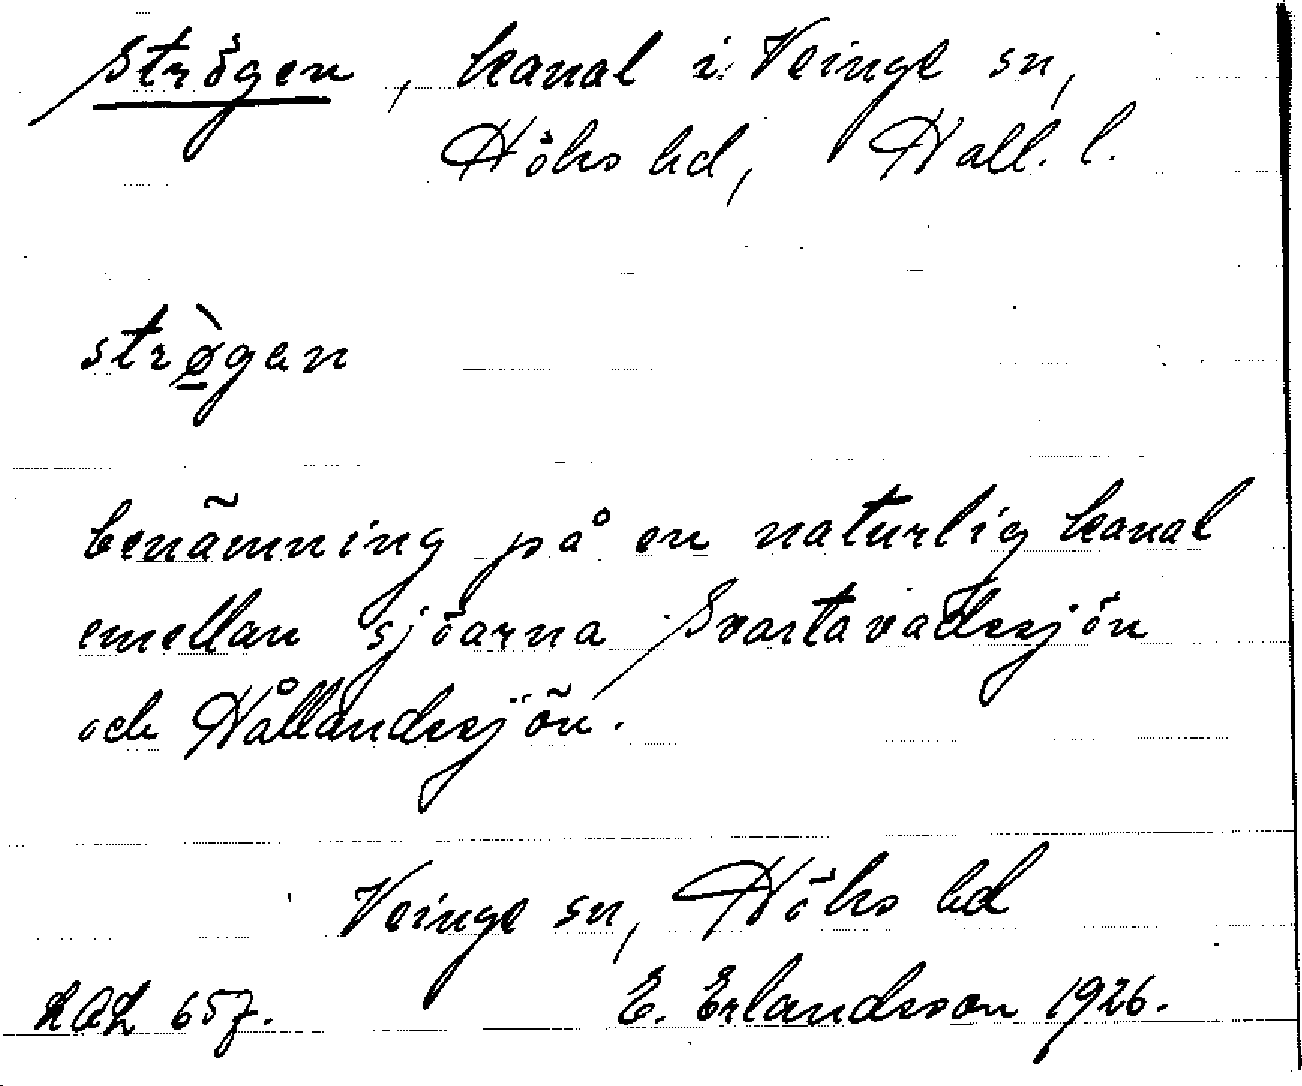 Strögen, kanal i Veinge sn,
Höks hd, Hall. l.
strø̀gan
benämning på en naturlig kanal
emellan sjöarna Svartavadssjön
och Hållandssjön.
Veinge sn, Höks hd
LAL 657. E. Erlandsson 1926.